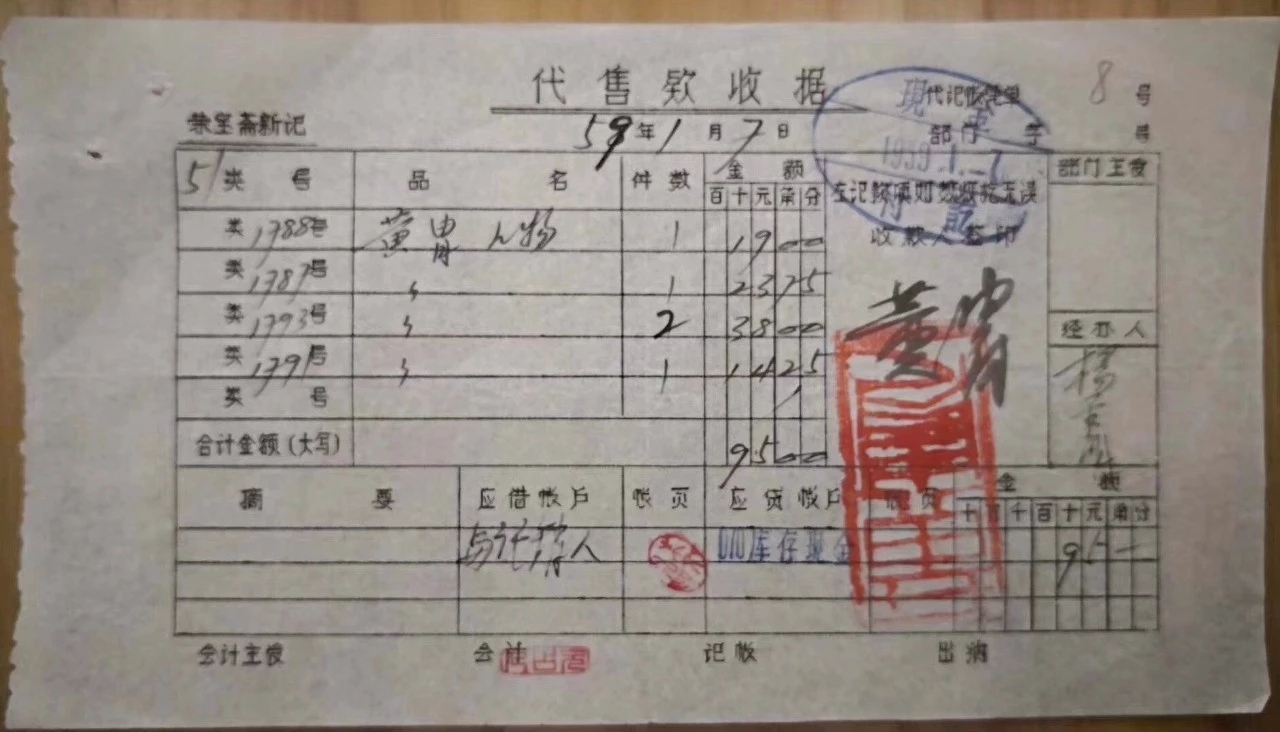 代售款收据
8 号
荣宝斋新记
59年1月7日
代记帐凭单
部门 字 号
51类 号 品 名 件数 金额 部门主管
百十元角分
左记款项如数收讫无误
收款人签印
类1788号 黄胄 人物 1 19 00
类1787号 〃 1 23 75
类1793号 〃 2 38 00
类1791号 〃 1 14 25
类 号
合计金额(大写) 95 00
黄胄
经办人
摘 要 应借帐户 帐页 应贷帐户 帐页 金 额
十万千百十元角分
人 库存现金 95 —
会计主管 会计 记帐 出纳